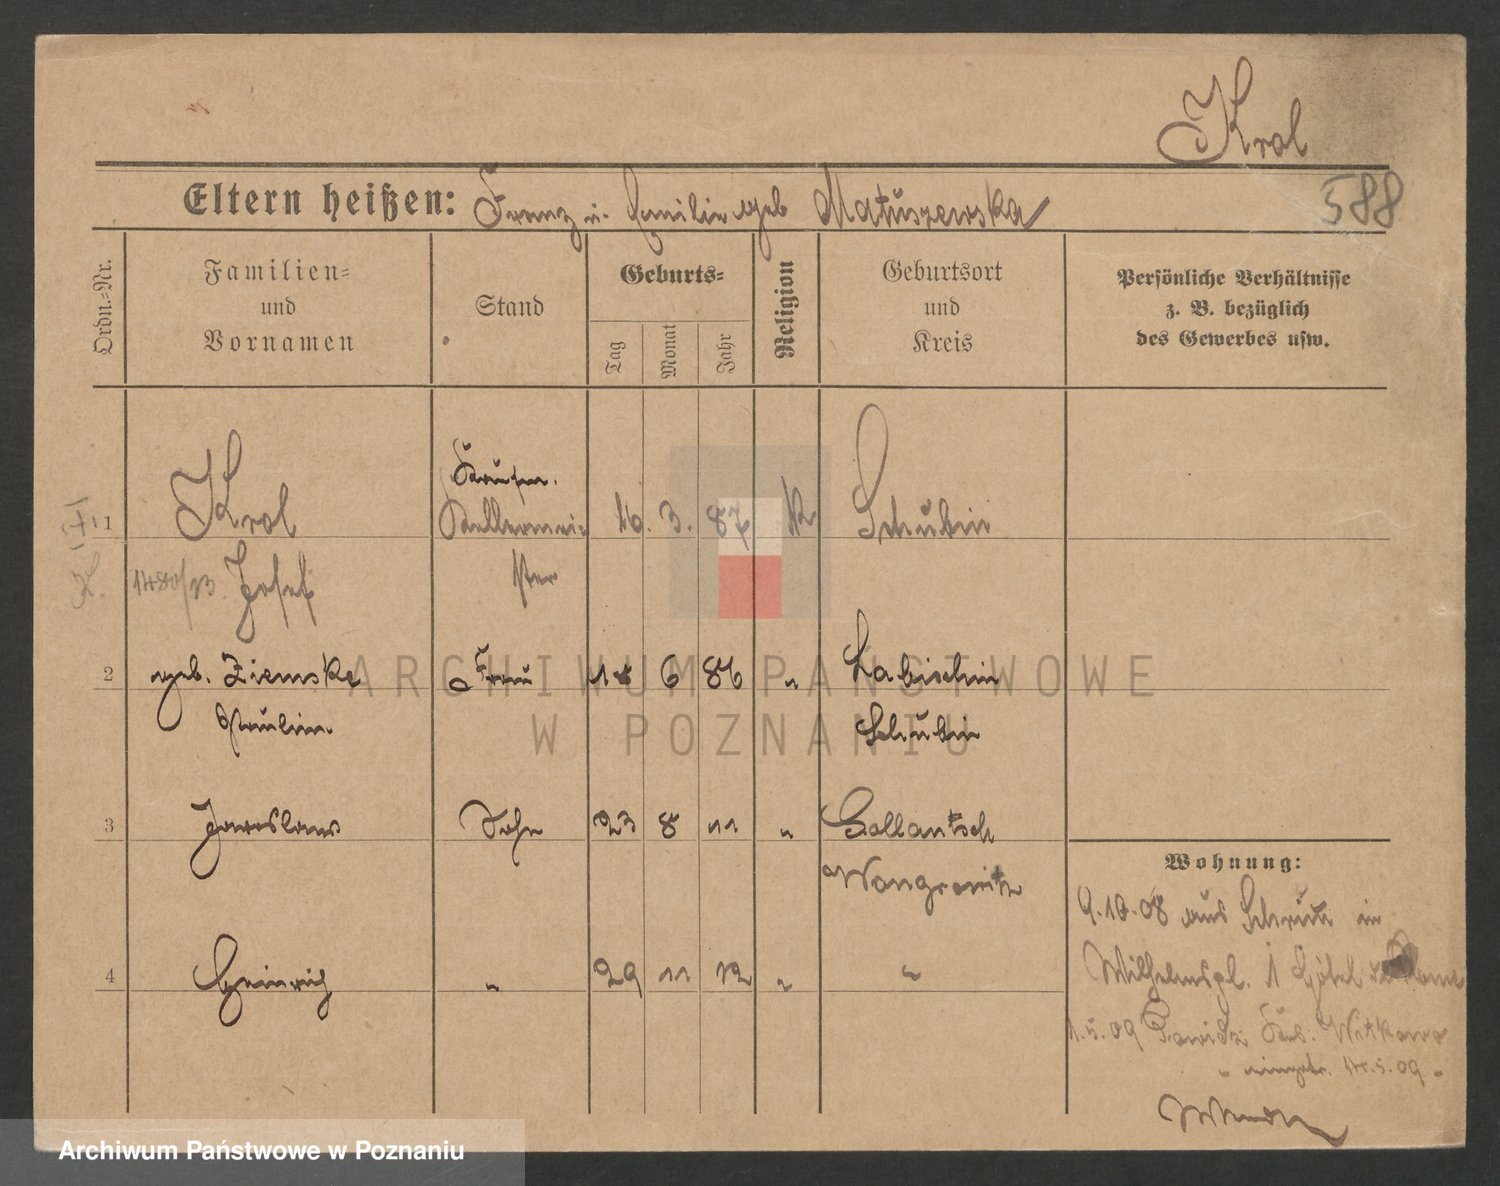 Krol
Eltern heißen: Franz u. Emilie geb Matuszewska
588
Ordn.-Nr.
Familien-
und
Vornamen
Stand
Geburts-
Tag
Monat
Jahr
Religion
Geburtsort
und
Kreis
Persönliche Verhältnisse
z. B. bezüglich
des Gewerbes usw.
1 Krol Kellermei- 16. 3. 87 K Schubin
Josef ster
2 geb. Ziemske Frau 6 86 " Labischin
Paulina Schubin
3 Jaroslaus Sohn 23 8 11 " Gollantsch
Wongrowitz
4 Heinrich " 29 11 12 " "
Wohnung:
9.10.08 aus in
Wilhelmspl. 1 Hôtel
1.5.09 Witkowo
" 14.5.09 "
ARCHIWUM PAŃSTWOWE
W POZNANIU
Archiwum Państwowe w Poznaniu